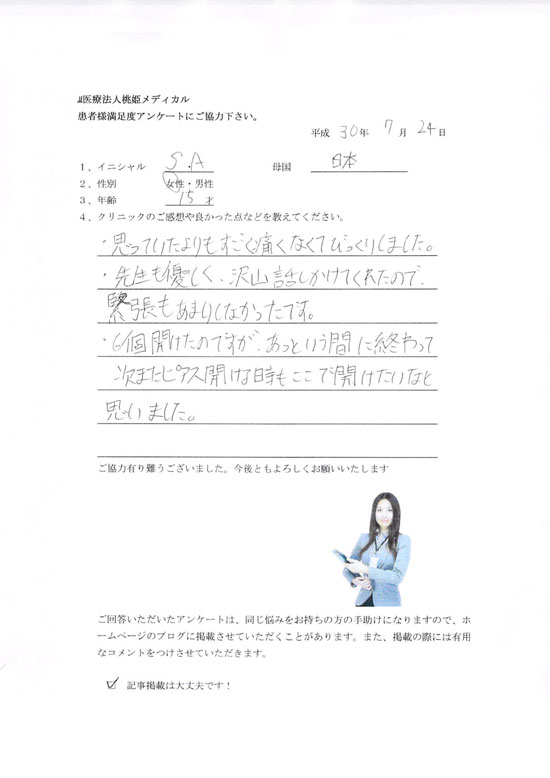 医療法人桃姫メディカル
患者様満足度アンケートにご協力下さい。
平成 30年 7月 24日
1、イニシャル S.A 母国 日本
2、性別 女性・男性
3、年齢 15才
4、クリニックのご感想や良かった点などを教えてください。
・思っていたよりもすごく痛くなくてびっくりしました。
・先生も優しく、沢山話しかけてくれたので、
緊張もあまりしなかったです。
・6個開けたのですが、あっという間に終わって
次またピアス開ける時もここで開けたいなと
思いました。
ご協力有り難うございました。今後ともよろしくお願いいたします
ご回答いただいたアンケートは、同じ悩みをお持ちの方の手助けになりますので、ホ
ームページのブログに掲載させていただくことがあります。また、掲載の際には有用
なコメントをつけさせていただきます。
☑ 記事掲載は大丈夫です！